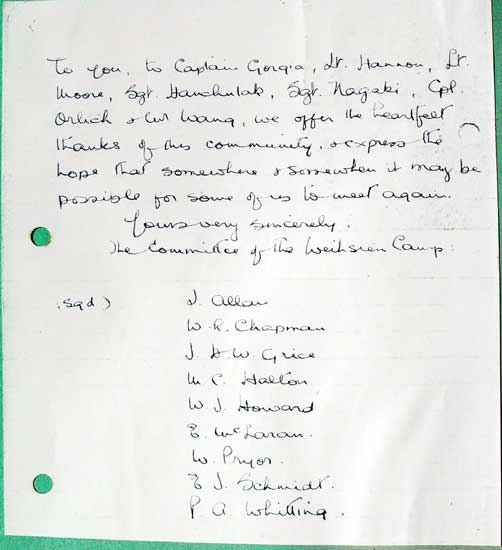 To you, to Captain Gorgia, Lt. Hannon, Lt.
Moore, Sgt. Hanchulak, Sgt. Nagaki, Cpl.
Orlich & Mr Wang, we offer the heartfelt
thanks of this community, & express the
hope that somewhere & somewhen it may be
possible for some of us to meet again.
Yours very sincerely.
The Committee of the Weihsien Camp:
(sgd)
J. Allan
W. R. Chapman
J. H. W. Grice
M. C. Halton
W. J. Howard
E. McLaran.
W. Pryor.
E J. Schmidt.
P. A. Whitting.